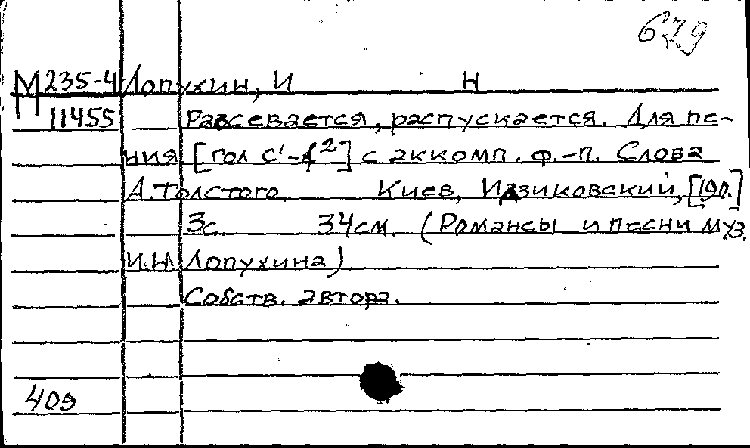 679
М 235-4 Лопухин, И Н
11455 Рассевается, распускается. Для пе-
ния [гол с¹-f²] с аккомп. ф.-п. Слова
А. Толстого. Киев, Идзиковский, [190.]
3с. 34см. (Романсы и песни муз.
И.Н. Лопухина)
Собств. автора.
409